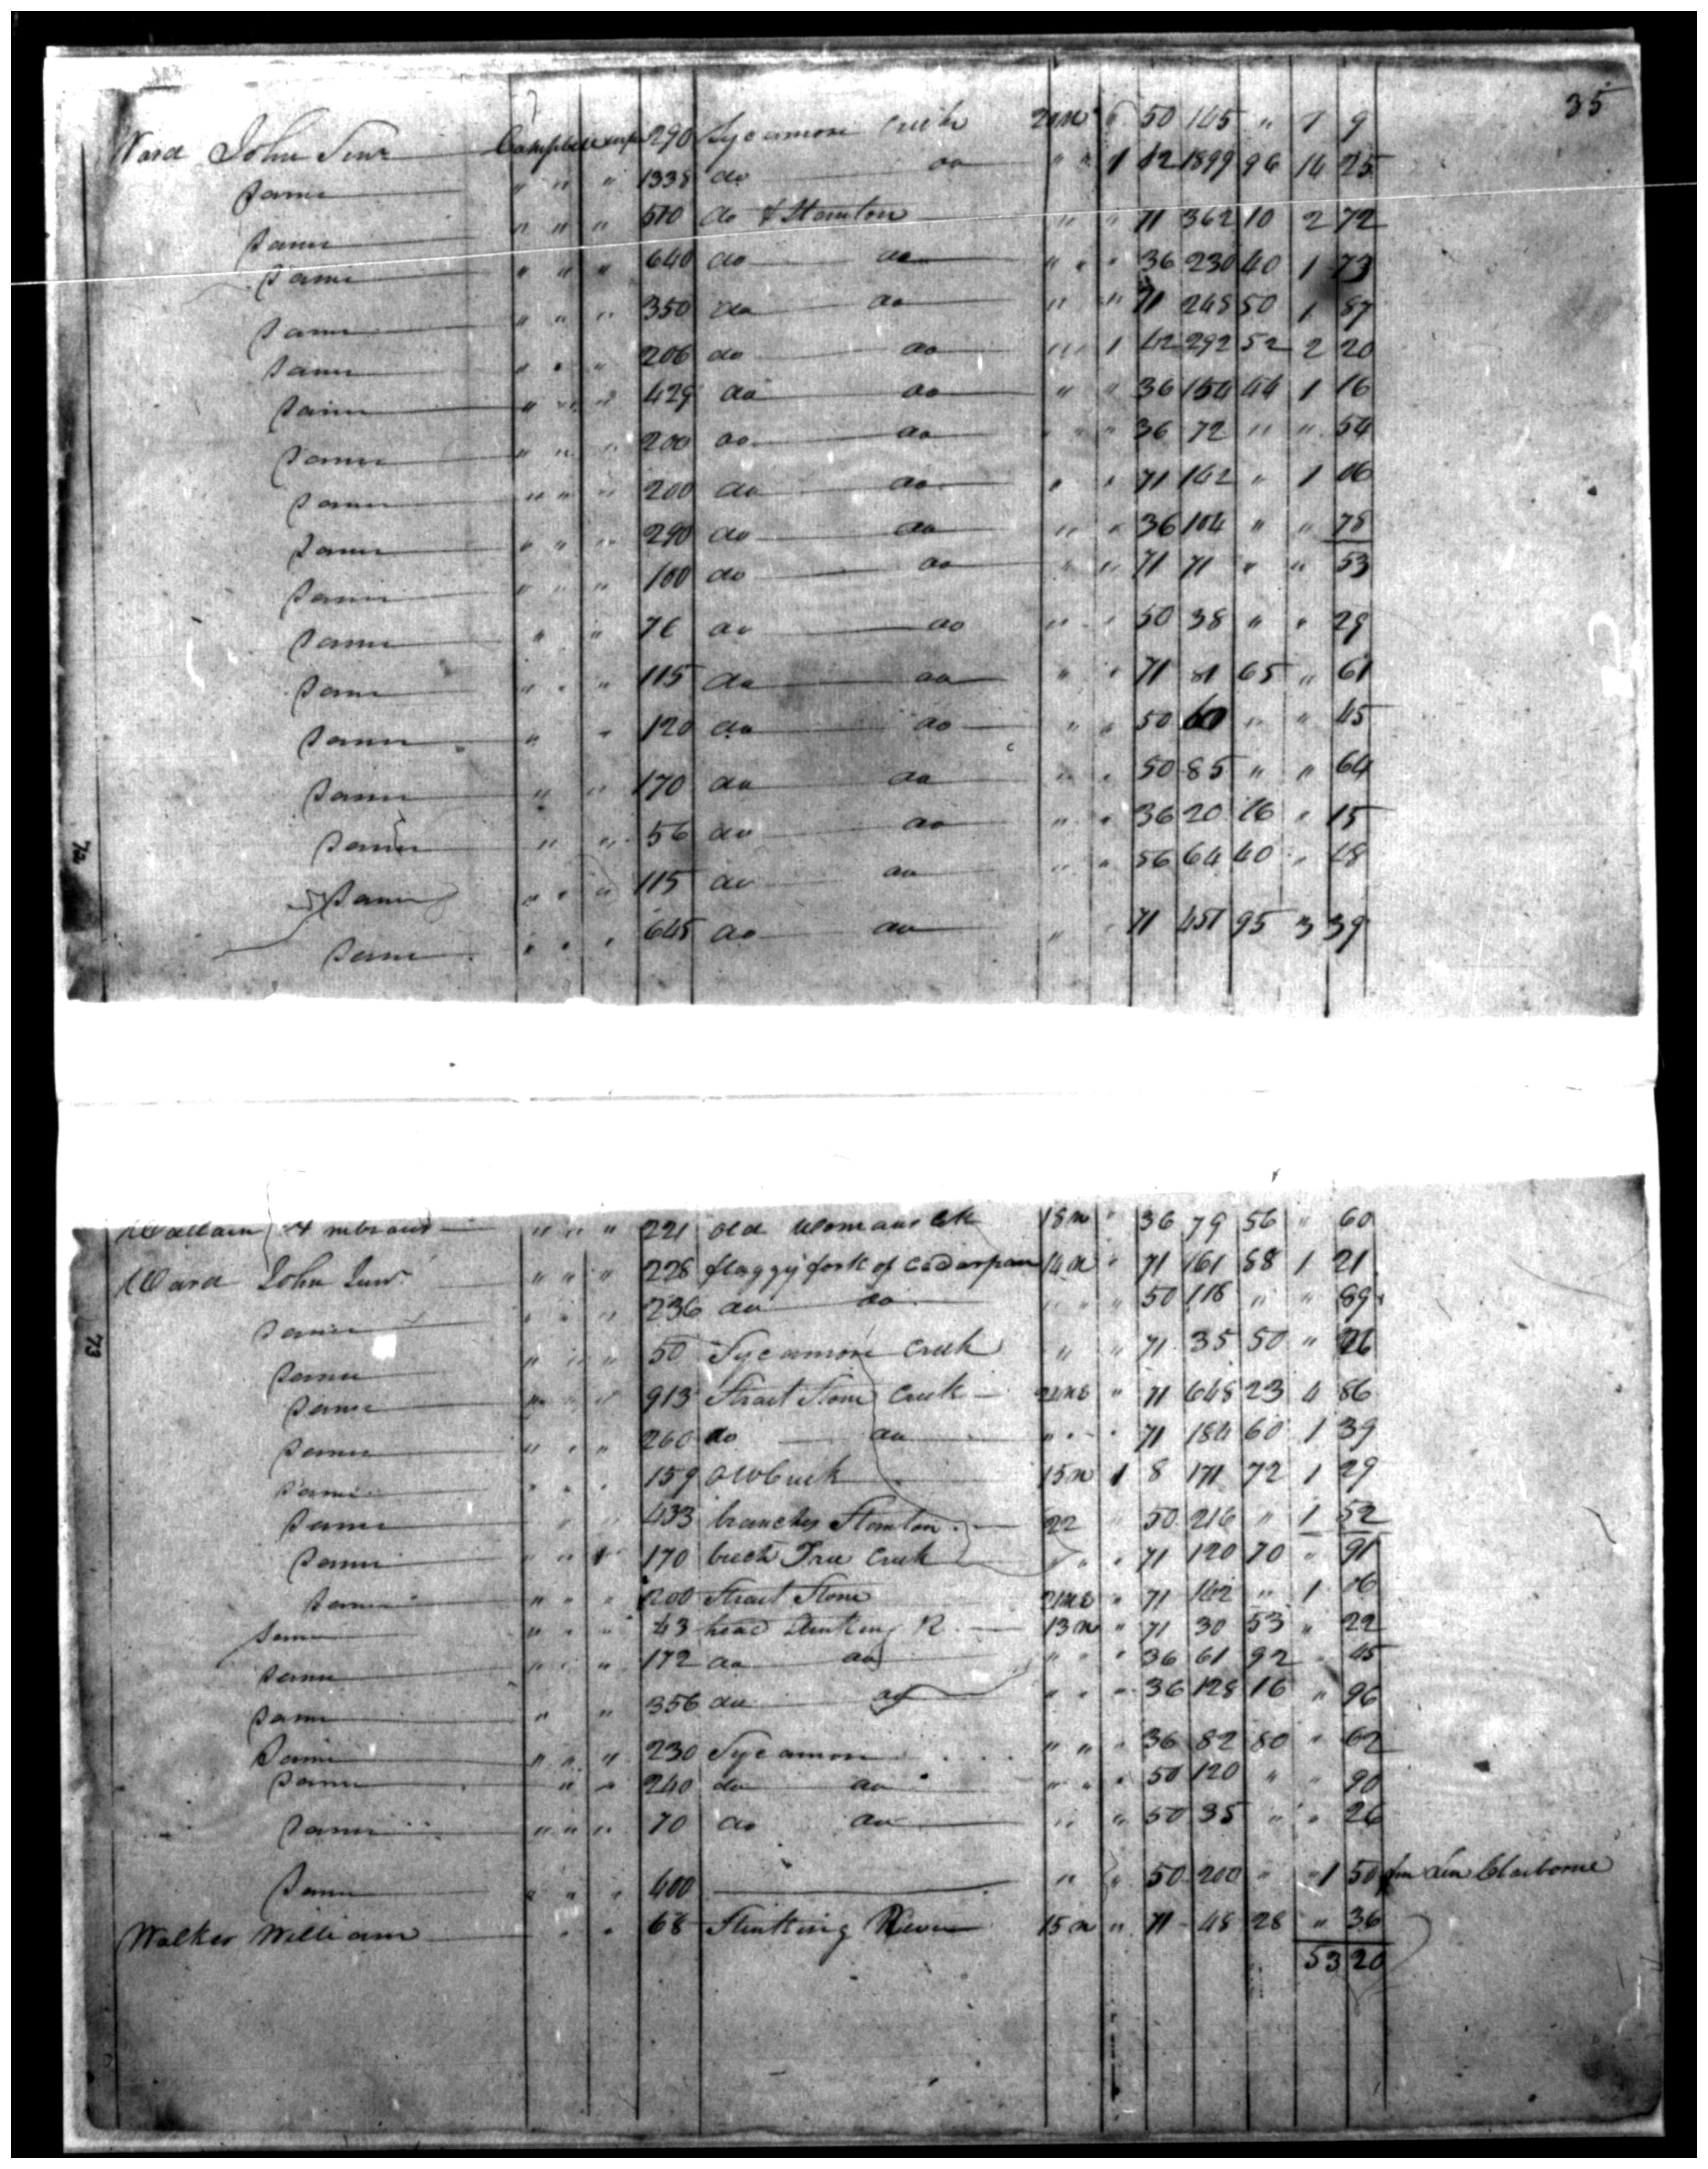 35
Ward John Senr Campbell 290 Sycamore Creek 21 N E " 50 145 " 1 9
Same " " " 1338 do do " " 1 42 1899 96 14 25
Same " " " 510 do & Stanton " " 71 362 10 2 72
Same " " " 640 do do " " " 36 230 40 1 73
Same " " " 350 do do " " 71 248 50 1 87
Same " " " 206 do do " " 1 42 292 52 2 20
Same " " " 429 do do " " 36 154 44 1 16
Same " " " 200 do do " " " 36 72 " " 54
Same " " " 200 do do " " 71 142 " 1 06
Same " " " 290 do do " " 36 104 " " 78
Same " " " 100 do do " " 71 71 " " 53
Same " " 76 do do " " 50 38 " " 29
Same " " " 115 do do " " 71 81 65 " 61
Same " " 120 do do " " 50 60 " " 45
Same " " 170 do do " " 50 85 " " 64
72
Same " " 56 do do " " 36 20 16 " 15
Same " " " 115 do do " " 56 64 40 " 48
Same " " " 645 do do " " 71 457 95 3 39
" " " 221 old Womans Ck 18 N " 36 79 56 " 60
Ward John Junr " " " 228 flaggy fork of 14 N " 71 161 88 1 21
Same " " " 236 do do " " " 50 118 " " 89
73
Same " " " 50 Sycamore Creek " " 71 35 50 " 26
Same " " " 913 Strait Stone Creek 21 N E " 71 648 23 4 86
Same " " " 260 do do " " " 71 184 60 1 39
Same " " " 159 Creek 15 N 1 8 171 72 1 29
Same " " 433 branches Stanton 22 " 50 216 " 1 52
Same " " " 170 beech Tree Creek " " " 71 120 70 " 91
Same " " " 200 Strait Stone 21 N E " 71 142 " 1 06
Same " " " 43 head Stinking R. 13 N " 71 30 53 " 22
Same " " " 172 do do " " " 36 61 92 " 45
Same " " 356 do do " " " 36 128 16 " 96
Same " " " 230 Sycamore " " " 36 82 80 " 62
Same " " 240 do do " " " 50 120 " " 90
Same " " " 70 do do " " 50 35 " " 26
Same " " " 400 " " 50 200 " " 1 50 Claiborne
Walker William " " 68 Stinking River 15 N " 71 48 28 " 36
53 20